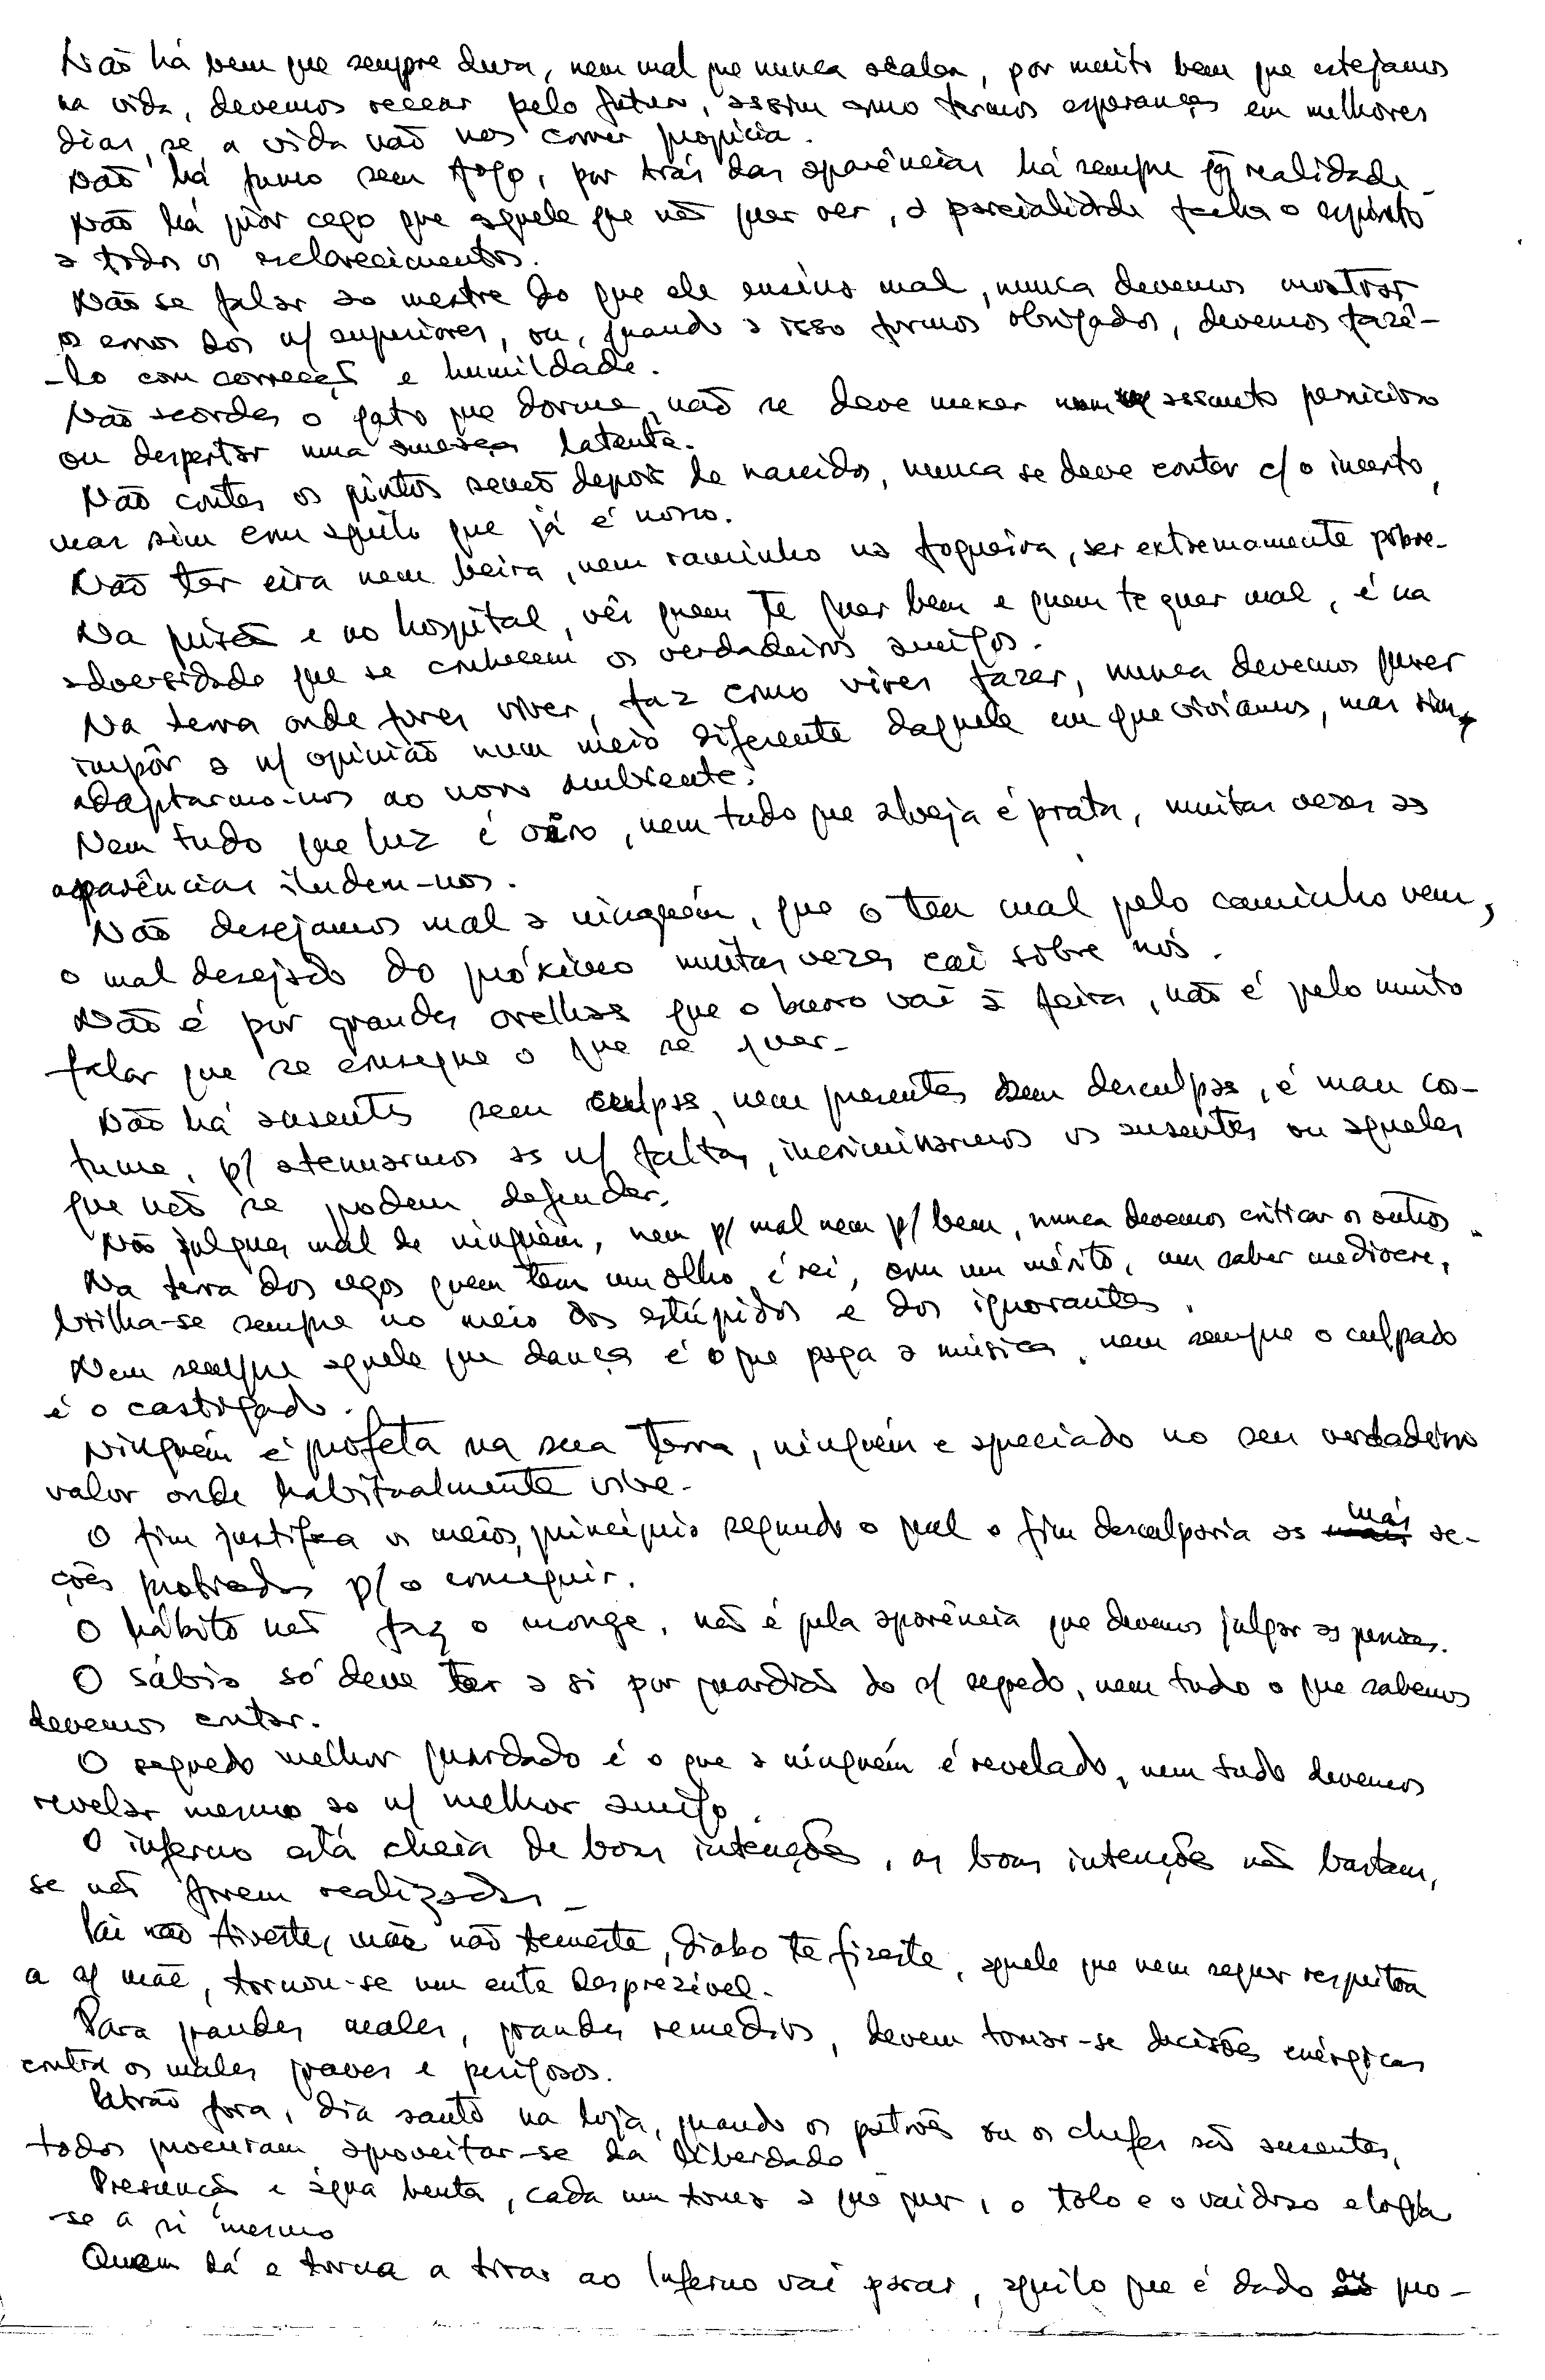 Não há bem que sempre dura, nem mal que nunca acabe, por muito bem que estejamos
na vida, devemos recear pelo futuro, assim como termos esperanças em melhores
dias, se a vida não nos correr propícia.
Não há fumo sem fogo, por trás das aparências há sempre realidade.
Não há pior cego que aquele que não quer ver, a parcialidade fecha o espírito
a todos os esclarecimentos.
Não se falar ao mestre do que ele ensina mal, nunca devemos mostrar
os erros dos n/ superiores, ou, quando a isso formos obrigados, devemos fazê-
-lo com correcção e humildade.
Não acordes o gato que dorme, não se deve mexer num assunto pernicioso
ou despertar uma ameaça latente.
Não contes os pintos senão depois de nascidos, nunca se deve contar c/ o incerto,
mas sim com aquilo que já é nosso.
Não ter eira nem beira, nem raminho na fogueira, ser extremamente pobre.
Na prisão e no hospital, vês quem te quer bem e quem te quer mal, é na
adversidade que se conhecem os verdadeiros amigos.
Na terra onde fores viver, faz como vires fazer, nunca devemos querer
impôr a n/ opinião num meio diferente daquele em que vivíamos, mas sim,
adaptarmo-nos ao novo ambiente.
Nem tudo que luz é oiro, nem tudo que alveja é prata, muitas vezes as
aparências iludem-nos.
Não desejamos mal a ninguém, que o teu mal pelo caminho vem,
o mal desejado do próximo muitas vezes cai sobre nós.
Não é por grandes orelhas que o burro vai à feira, não é pelo muito
falar que se consegue o que se quer.
Não há ausentes sem culpas, nem presentes sem desculpas, é mau cos-
tume, p/ atenuarmos as n/ faltas, incriminarmos os ausentes ou aqueles
que não se podem defender.
Não julgues mal de ninguém, nem p/ mal nem p/ bem, nunca devemos criticar os outros.
Na terra dos cegos quem tem um olho é rei, com um mérito, um saber medíocre,
brilha-se sempre no meio dos estúpidos e dos ignorantes.
Nem sempre aquele que dança é o que paga a música, nem sempre o culpado
é o castigado.
Ninguém é profeta na sua terra, ninguém é apreciado no seu verdadeiro
valor onde habitualmente vive.
O fim justifica os meios, princípio segundo o qual o fim desculparia as más ac-
ções praticadas p/ o conseguir.
O hábito não faz o monge, não é pela aparência que devemos julgar as pessoas.
O sábio só deve ter a si por guardião do s/ segredo, nem tudo o que sabemos
devemos contar.
O segredo melhor guardado é o que a ninguém é revelado, nem tudo devemos
revelar mesmo ao n/ melhor amigo.
O inferno está cheia de boas intenções, as boas intenções não bastam,
se não forem realizadas.
Pai não tiveste, mãe não temeste, diabo te fizeste, aquele que nem sequer respeitou
a s/ mãe, tornou-se um ente desprezível.
Para grandes males, grandes remedios, devem tomar-se decisões enérgicas
contra os males graves e perigosos.
Patrão fora, dia santo na loja, quando os patrões ou os chefes são ausentes,
todos procuram aproveitar-se da liberdade
Presunção e água benta, cada um toma a que quer, o tolo e o vaidoso elogia
-se a si mesmo
Quem dá e torna a tirar ao Inferno vai parar, aquilo que é dado ou pro-